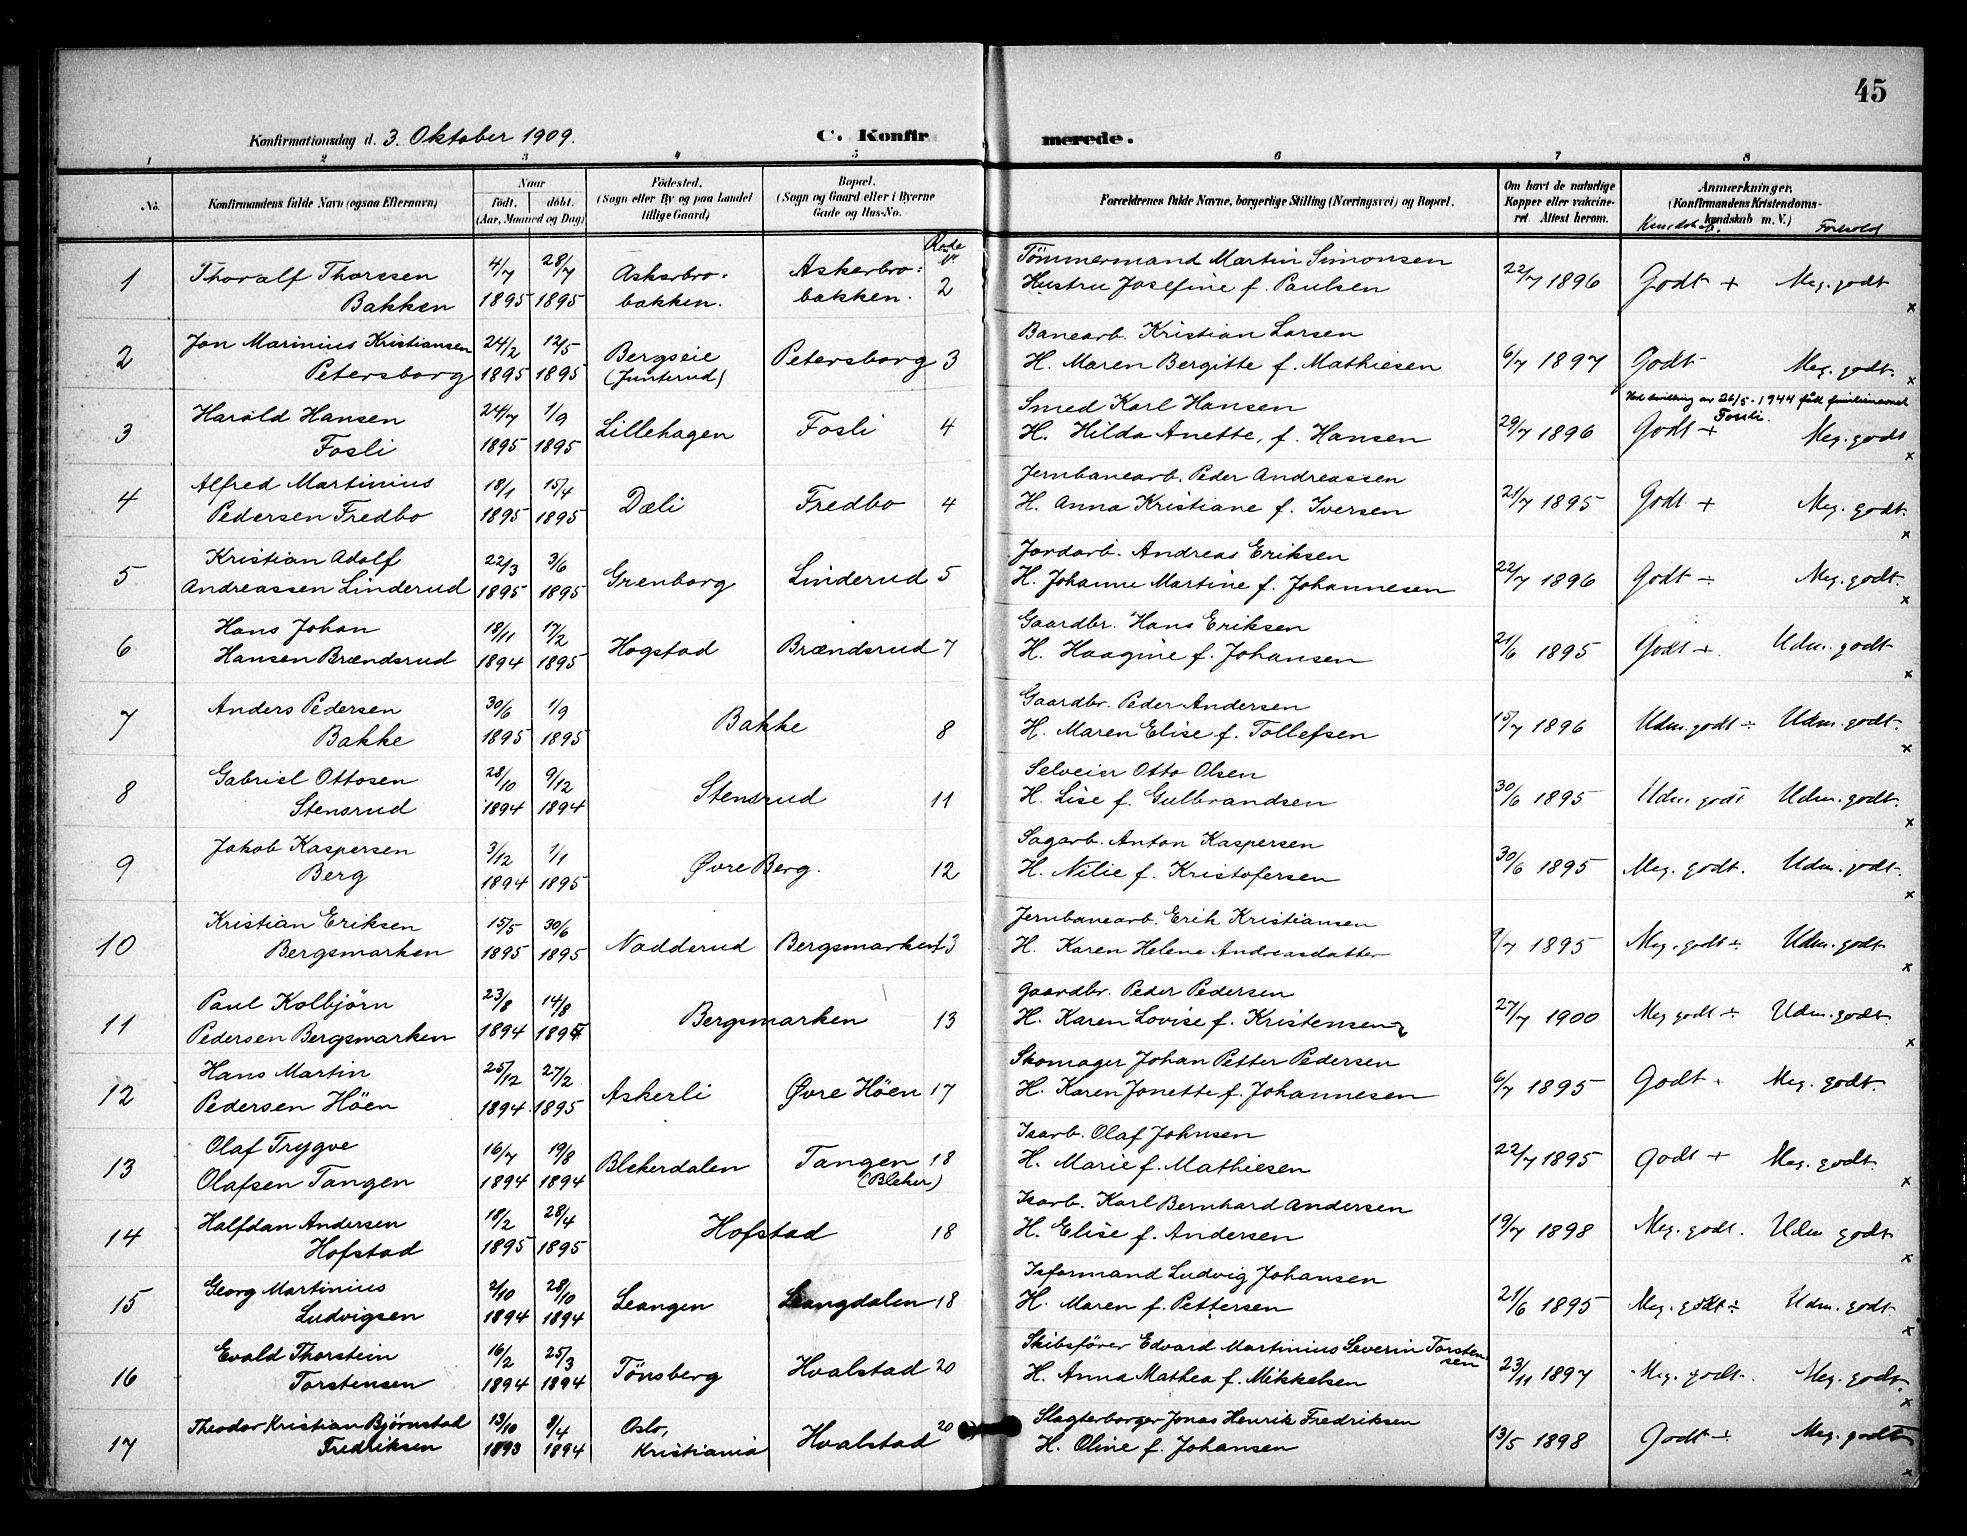 45
Konfirmationsdag d. 3. Oktober 1909.
C. Konfirmerede.
1 2 3 4 5 6 7 8
No.
Konfirmandens fulde Navn (ogsaa Efternavn)
Naar
født. døbt.
(Aar, Maaned og Dag)
Fødested.
(Sogn eller By og paa Landet
tillige Gaard)
Bopæl.
(Sogn og Gaard eller i Byerne
Gade og Hus-No.
Rode
Forældrenes fulde Navne, borgerlige Stilling (Næringsvei) og Bopæl.
Om havt de naturlige
Kopper eller vakcineret. Attest herom.
Anmærkninger,
(Konfirmandens Kristendomskundskab m. V.)
Kundskab. Forhold
1 Thoralf Thoresen 4/7 28/7 Askerbro- Askerbro- 2 Tömmermand Martin Simonsen 22/7 1896 Godt + Meg. godt x
Bakken 1895 1895 bakken. bakken. Hustru Josefine f. Paulsen
2 Jon Marinius Kristiansen 24/2 12/5 Bergseie Petersborg 3 Banearb. Kristian Larsen 6/7 1897 Godt Meg. godt. x
Petersborg 1895 1895 (Junterud) H. Maren Bergitte f. Mathiesen
Ved bevilling av 26/5-1944 fått familienavnet
Fossli.
3 Harald Hansen 24/7 1/9 Lillehagen Fosli 4 Smed Karl Hansen 29/7 1896 Godt + Meg. godt x
Fosli 1895 1895 H. Hilda Anette, f. Hansen
4 Alfred Martinius 18/1 15/4 Dæli Fredbo 4 Jernbanearb. Peder Andreassen 21/7 1895 Godt + Meg. godt. x
Pedersen Fredbo 1895 1895 H. Anna Kristiane f. Iversen
5 Kristian Adolf 22/3 3/6 Grenborg Linderud 5 Jordarb. Andreas Eriksen 22/7 1896 Godt ÷ Meg. godt. x
Andreassen Linderud 1895 1895 H. Johanne Martine f. Johannesen
6 Hans Johan 18/11 17/2 Hogstad Brændsrud 7 Gaardbr. Hans Eriksen 21/6 1895 Godt + Udm. godt x
Hansen Brændsrud 1894 1895 H. Haagine f. Johansen
7 Anders Pedersen 30/6 1/9 Bakke 8 Gaardbr. Peder Andersen 15/7 1896 Udm. godt ÷ Udm. godt. x
Bakke 1895 1895 H. Maren Elise f. Tollefsen
8 Gabriel Ottosen 28/10 9/12 Stensrud 11 Selveier Otto Olsen 30/6 1895 Udm godt Udm. godt. x
Stensrud 1894 1894 H. Lise f. Gulbrandsen
9 Jakob Kaspersen 3/12 1/1 Øvre Berg. 12 Sagarb. Anton Kaspersen 30/6 1895 Meg. godt. Udm. godt. x
Berg 1894 1895 H. Nilie f. Kristofersen
10 Kristian Eriksen 15/5 30/6 Nadderud Bergsmarken 13 Jernbanearb. Erik Kristiansen 9/7 1895 Meg. godt ÷ Udm. godt x
Bergsmarken 1895 1895 H. Karen Helene Andreasdatter
11 Paul Kolbjörn 23/8 14/8 Bergsmarken 13 Gaardbr. Peder Pedersen 27/7 1900 Meg godt ÷ Udm. godt. x
Pedersen Bergsmarken 1894 1895 H. Karen Lovise f. Kristensen
12 Hans Martin 25/12 27/2 Askerli Øvre Höen 17 Skomager Johan Petter Pedersen 6/7 1895 Godt Meg. godt.
Pedersen Höen 1894 1895 H. Karen Jonette f. Johannesen
13 Olaf Trygve 16/7 19/8 Blekerdalen Tangen 18 Isarb. Olaf Johnsen 22/7 1895 Godt + Meg. godt x
Olafsen Tangen 1894 1894 (Bleker) H. Marie f. Mathiesen
14 Halfdan Andersen 18/2 28/4 Hofstad 18 Isarb. Karl Bernhard Andersen 19/7 1898 Meg. godt. Udm godt x
Hofstad 1895 1895 H. Elise f. Andersen
15 Georg Martinius 2/10 28/10 Leangen Leangdalen 18 Isformand Ludvig Johansen 21/6 1895 Meg. godt ÷ Udm. godt. x
Ludvigsen 1894 1894 H. Maren f. Pettersen
16 Evald Thorstein 16/2 25/3 Tönsberg Hvalstad 20 Skibsförer Edvard Martinius Severin Torstensen 23/11 1897 Meg. godt. Meg. godt. x
Torstensen 1894 1894 H. Anna Mathea f. Mikkelsen
17 Theodor Kristian Bjørnstad 13/10 8/4 Oslo, Hvalstad 20 Slagterborger Jonas Henrik Fredriksen 13/5 1898 Godt ÷ Meg. godt x
Fredriksen 1893 1894 Kristiania H. Oline f. Johansen